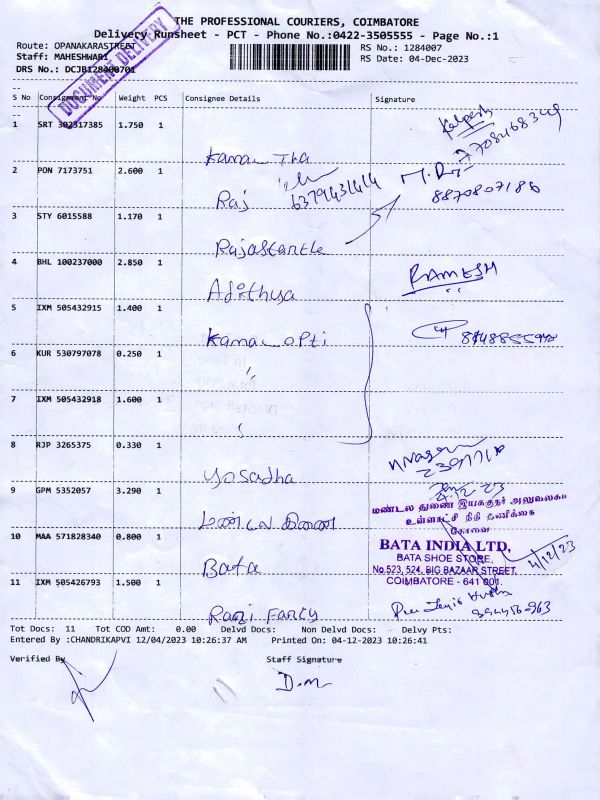 THE PROFESSIONAL COURIERS, COIMBATORE
Delivery Runsheet - PCT - Phone No.:0422-3505555 - Page No.:1
Route: OPANAKARASTREET
RS No.: 1284007
Staff: MAHESHWARI
RS Date: 04-Dec-2023
DRS No.: DCJB128400701
DOCUMENT DELIVERY
S No Consignment No Weight PCS Consignee Details Signature
1 SRT 302317385 1.750 1 Kalpesh
7708468349
2 PON 7173751 2.600 1 Raj 6379431414
8870807186
3 STY 6015588 1.170 1
4 BHL 100237000 2.850 1 Adithya RAMESH
5 IXM 505432915 1.400 1 Kamal opti
6 KUR 530797078 0.250 1 "
7 IXM 505432918 1.600 1 "
8 RJP 3265375 0.330 1 Yosadha
9 GPM 5352057 3.290 1
மண்டல துணை இயக்குநர் அலுவலகம்
உள்ளாட்சி நிதி தணிக்கை
கோவை
10 MAA 571828340 0.800 1 Bata
BATA INDIA LTD,
BATA SHOE STORE,
No.523, 524, BIG BAZAAR STREET,
COIMBATORE - 641 001.
4/12/23
11 IXM 505426793 1.500 1 Rani Fancy
Tot Docs: 11 Tot COD Amt: 0.00 Delvd Docs: Non Delvd Docs: Delvy Pts:
Entered By :CHANDRIKAPVI 12/04/2023 10:26:37 AM Printed On: 04-12-2023 10:26:41
Verified By Staff Signature
D.M